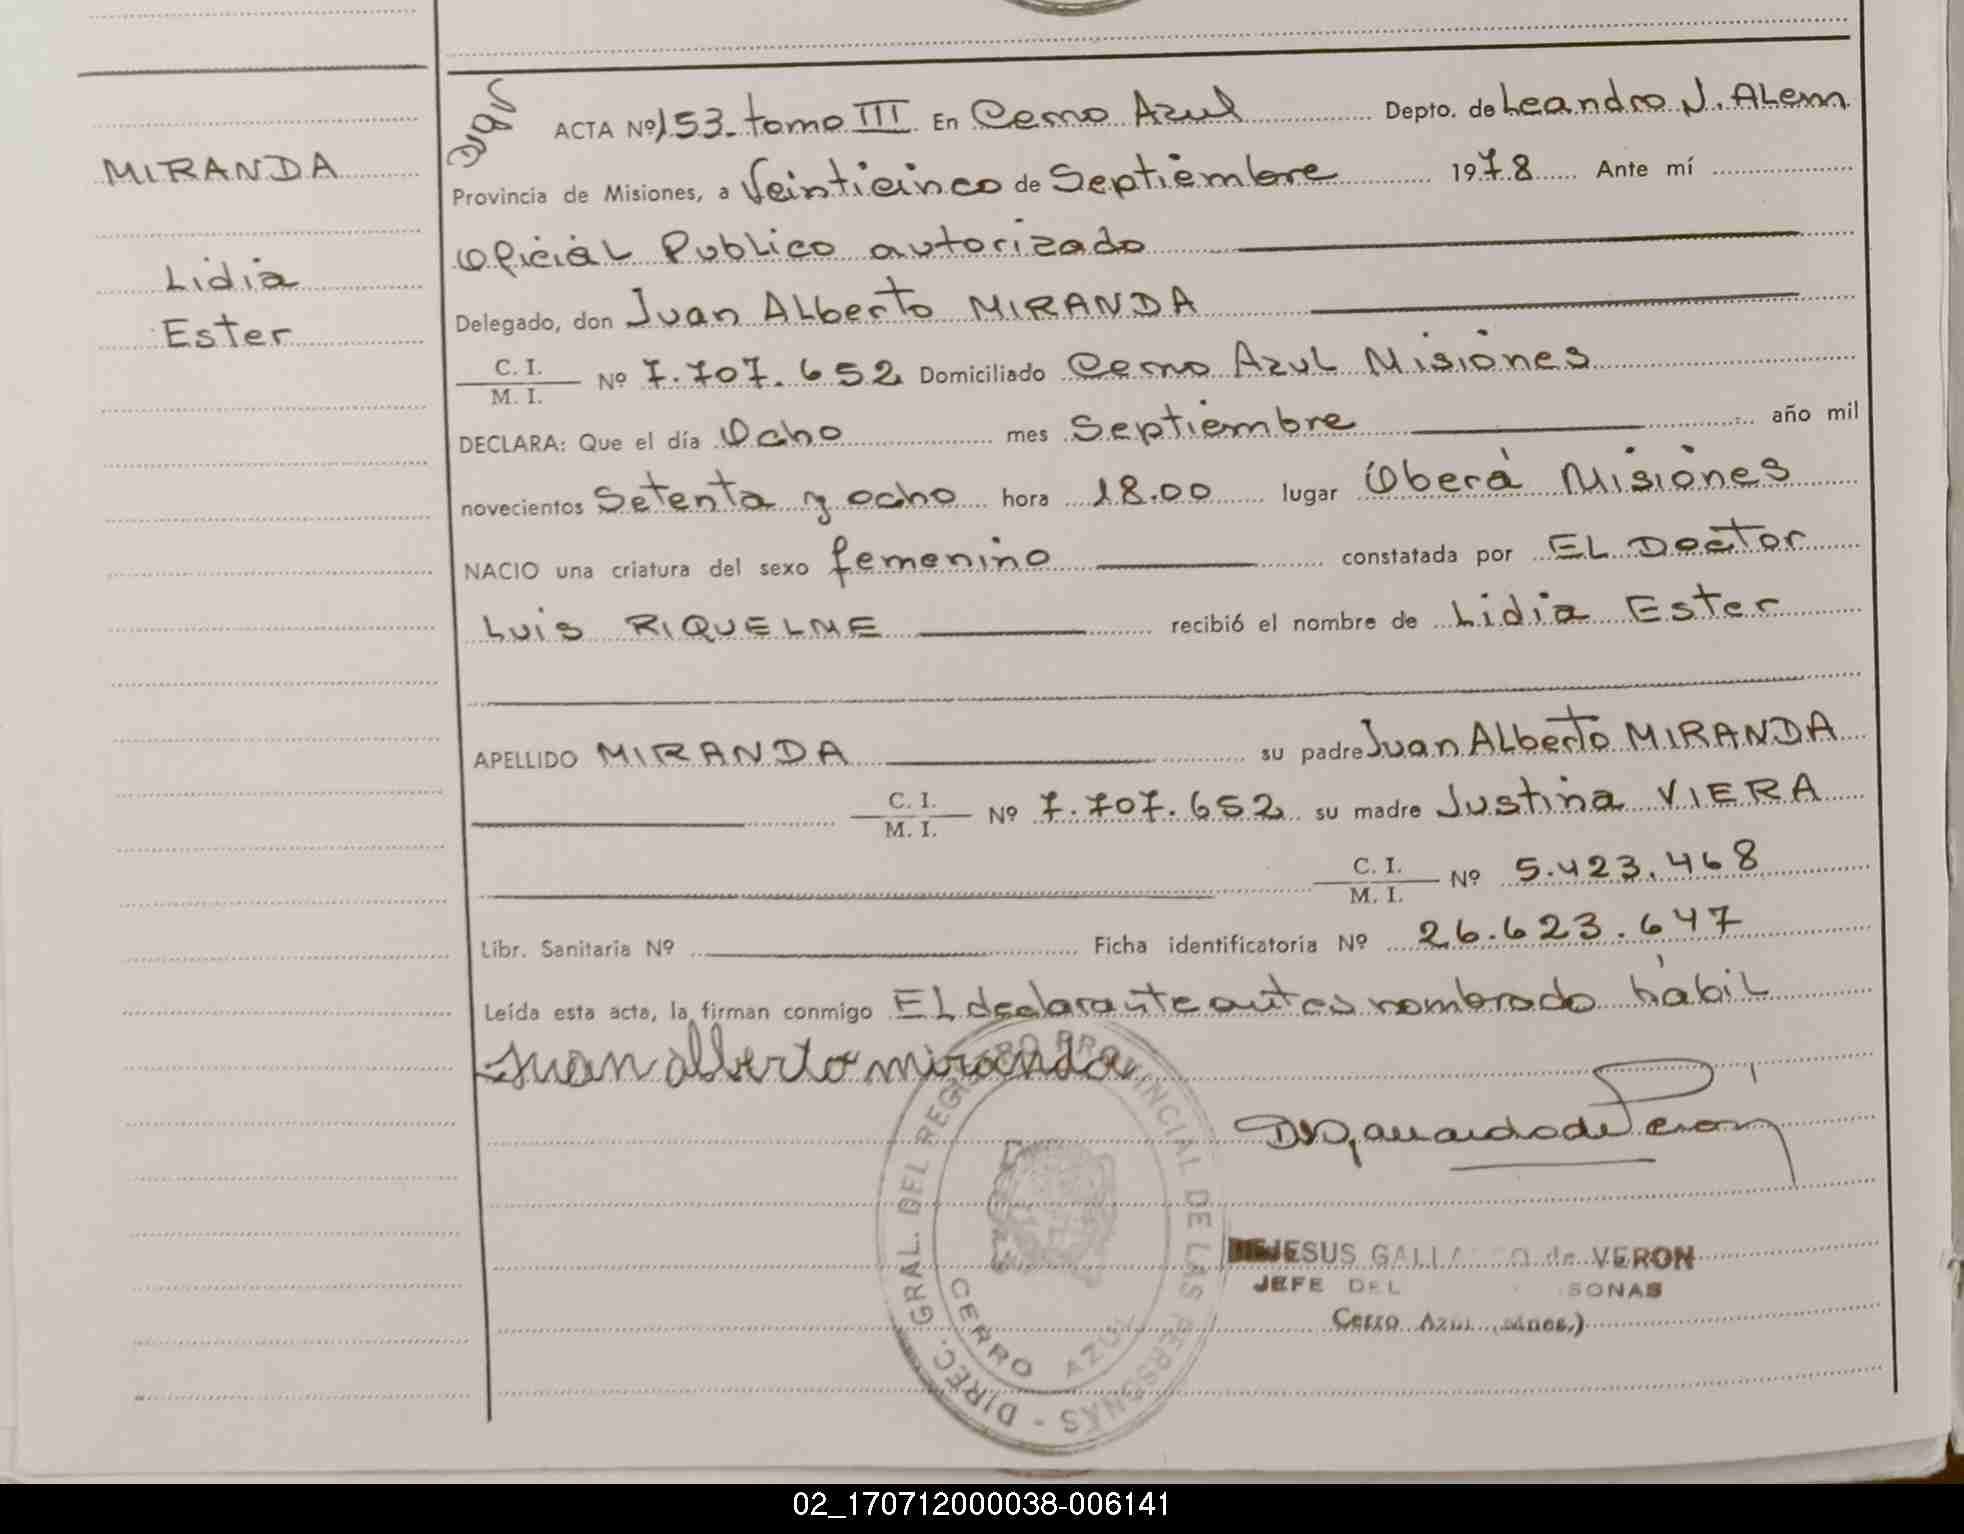 MIRANDA
Lidia
Ester
ACTA Nº 153. tomo III En Cerro Azul Depto. de Leandro N. ALem
Provincia de Misiones, a Veinticinco de Septiembre 1978 Ante mí
Oficial Publico autorizado
Delegado, don Juan ALberto MIRANDA
C. I.
M. I. Nº 7.707.652 Domiciliado Cerro Azul Misiones
DECLARA: Que el día Ocho mes Septiembre año mil
novecientos Setenta y ocho hora 18.00 lugar Oberá Misiones
NACIO una criatura del sexo femenino constatada por EL Doctor
Luis RIQUELME recibió el nombre de Lidia Ester
APELLIDO MIRANDA su padre Juan ALberto MIRANDA
C. I.
M. I. Nº 7.707.652 su madre Justina VIERA
C. I.
M. I. Nº 5.423.468
Libr. Sanitaria Nº Ficha identificatoria Nº 26.623.647
Leída esta acta, la firman conmigo EL declarante antes nombrado hábil
Juan alberto miranda
DIREC. GRAL. DEL REGISTRO PROVINCIAL DE LAS PERSONAS -
CERRO AZUL
JESUS GALLARDO de VERON
JEFE DEL SONAS
Cerro Azul (Mnes.)
02_170712000038-006141